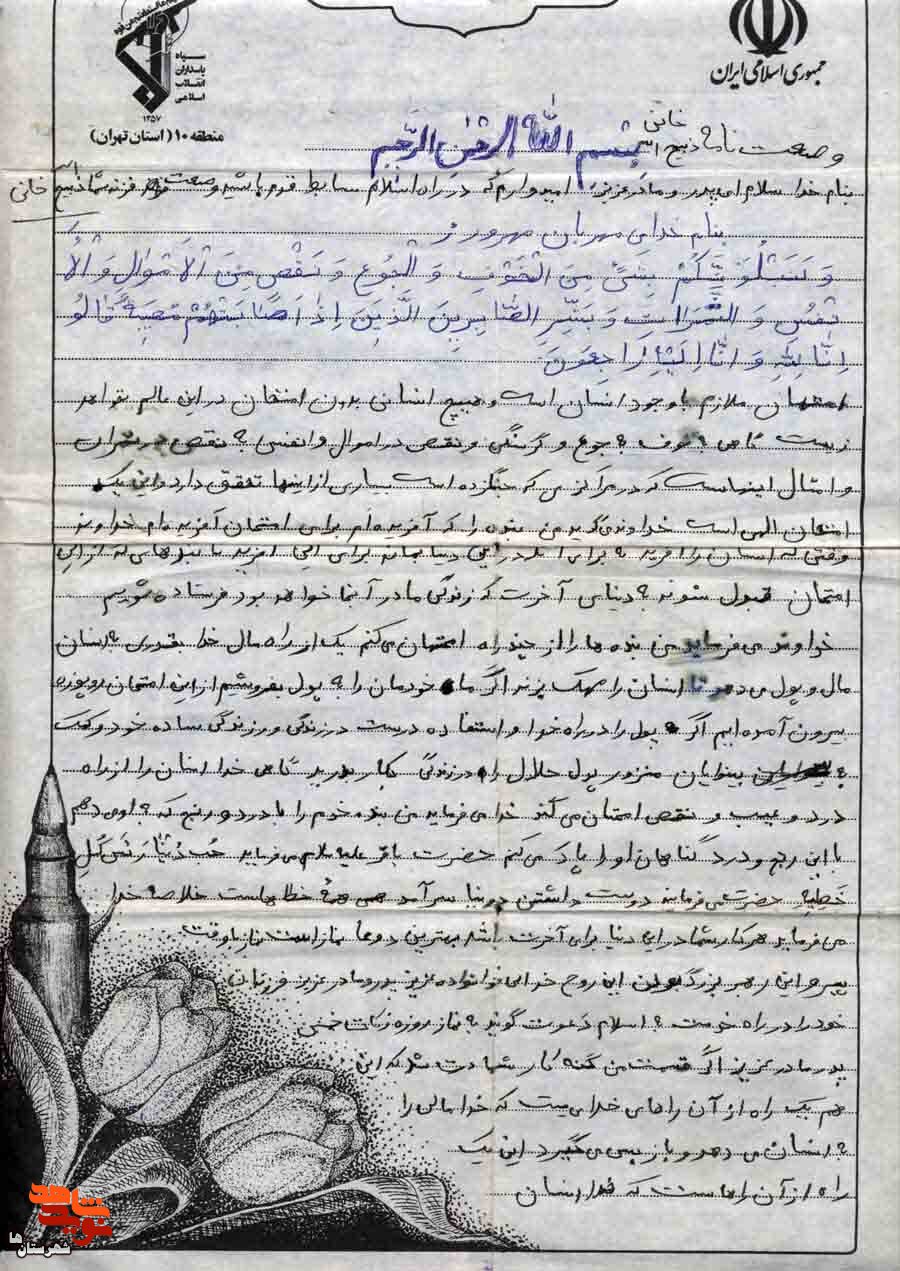 جمهوری اسلامی ایران
سپاه
پاسداران
انقلاب
اسلامی
۱۳۵۷
منطقه ۱۰ (استان تهران)
بسم الله الرحمن الرحیم
وصیت نامه ذبیح اله خانی
بنام خدا سلام ای پدر و مادر عزیز امیدوارم که در راه اسلام ثابط قدم باشید وصیت فرزند شما ذبیح اله خانی
بنام خدای مهربان مهرورز
وَ لَنَبْلُوَنَّكُمْ بِشَیْءٍ مِنَ الْخَوْفِ وَ الْجُوعِ وَ نَقْصٍ مِنَ الْاَمْوالِ وَ الْاَ
نْفُسِ وَ الثَّمَراتِ وَ بَشِّرِ الصّابِرینَ الَّذینَ اِذا اَصابَتْهُمْ مُصیبَةٌ قالُو
اِنّا لِلّهِ وَ اِنّا اِلَیْهِ راجِعونَ
امتحان ملازم با وجود انسان است و هیچ انسانی بدون امتحان در این عالم نخواهد
زیست گاهی به خوف به جوع و گرسنگی و نقص در اموال و انفس به نقص در ثمرات
و امثال اینهاست که در مراکزی که جنگزده است بسیاری از اینها تحقق دارد و این یک
امتحان الهی است خداوند می‌گوید من بنده را که آفریده‌ام برای امتحان آفریده‌ام خداوند
وقتی که انسان را آفرید نه برای ابد در این دنیا بماند برای این آفرید تا بنده‌هایی که از این
امتحان قبول شوند به دنیای آخرت که زندگی ما در آنجا خواهد بود فرستاده شویم
خداوند می‌فرماید من بنده ها را از چند راه امتحان می‌کنم یک از راه مال خدا بقدری به انسان
مال و پول می دهد تا انسان را مهک بزند اگر ما خودمان را به پول بفروشیم از این امتحان
بیرون آمده ایم اگر پول را در راه خدا و استفاده درست در زندگی و زندگی ساده خود و کمک
به بینوایان منزور پول حلال را در زندگی بکار ببرید گاهی خدا انسان را از راه
درد و عیب و نقص امتحان می‌کند خدا می فرماید من بنده خودم را با درد و رنج که به او می دهم
با این رنج و درد گناهان او را پاک می کنم حضرت باقر علیه سلام می فرماید حُب دُنیا رَئسُ كُلِ
خَطیئه حضرت می فرمایند دوست داشتن دنیا سر آمد همه خطا هاست خلاصه خدا
می فرماید هر کار شما در این دنیا برای آخرت باشد بهترین دوعا نماز است نماز با وقت
پیرو این رهبر بزرگ این روح خدا ای خوانواده عزیز پدر و مادر عزیز فرزندان
خود را در راه خدمت به اسلام دعوت کنید به نماز روزه زکات خمس
پدر مادر عزیز اگر قسمت من شهادت شد که این
هم یک راه از آن راهای خدایست که خدا مالی را
به انسان می دهد و باز پس می گیرد این یک
راه از آن راهاست که خدا انسان
نوید شاهد
شهرستان ها